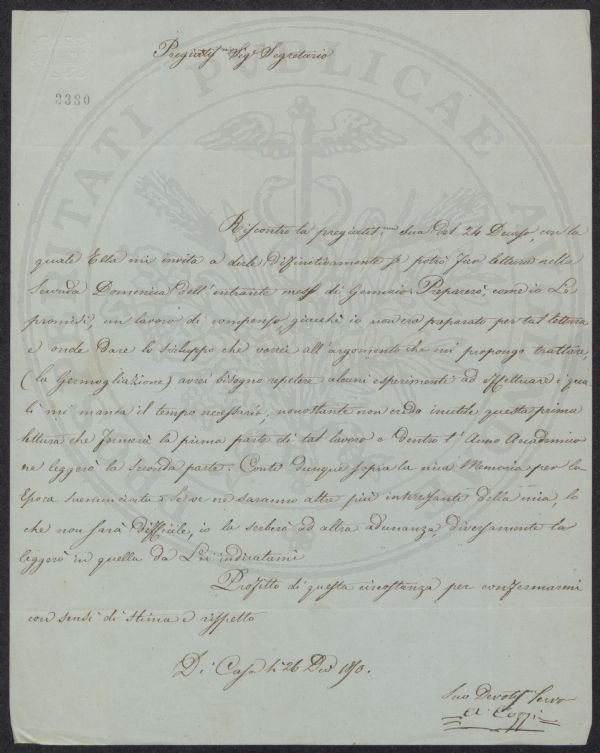 Pregiatis.mo Sig.r Segretario
2380
Riscontro la pregiatis.ma sua del 24 Decesso, con la
quale Ella mi invita a dirle definitivamente se potrò far lettura nella
Seconda Domenica dell'entrante mese di Gennaio. Preparerò, come io Le
promisi, un lavoro di compenso, giacchè io non era preparato per tal lettura
e onde dare lo sviluppo che vorrei all'argomento che mi propongo trattare,
(la Germogliazione) avrei bisogno repetere alcuni esperimenti ad effettuare i qua-
li mi manca il tempo necessario, nonostante non credo inutile questa prima
lettura che formerà la prima parte di tal lavoro e dentro l'Anno Accademico
ne leggerò la seconda parte. Conti dunque sopra la mia Memoria per la
Epoca e se ve ne saranno altre più interessanti della mia, lo
che non sarà difficile, io la serberò ad altra adunanza, diversamente la
leggerò in quella da Lei indicatami
Profitto di questa circostanza per confermarmi
con sensi di stima e rispetto
Di Casa li 26 Dec.
Suo Devotis. Servo